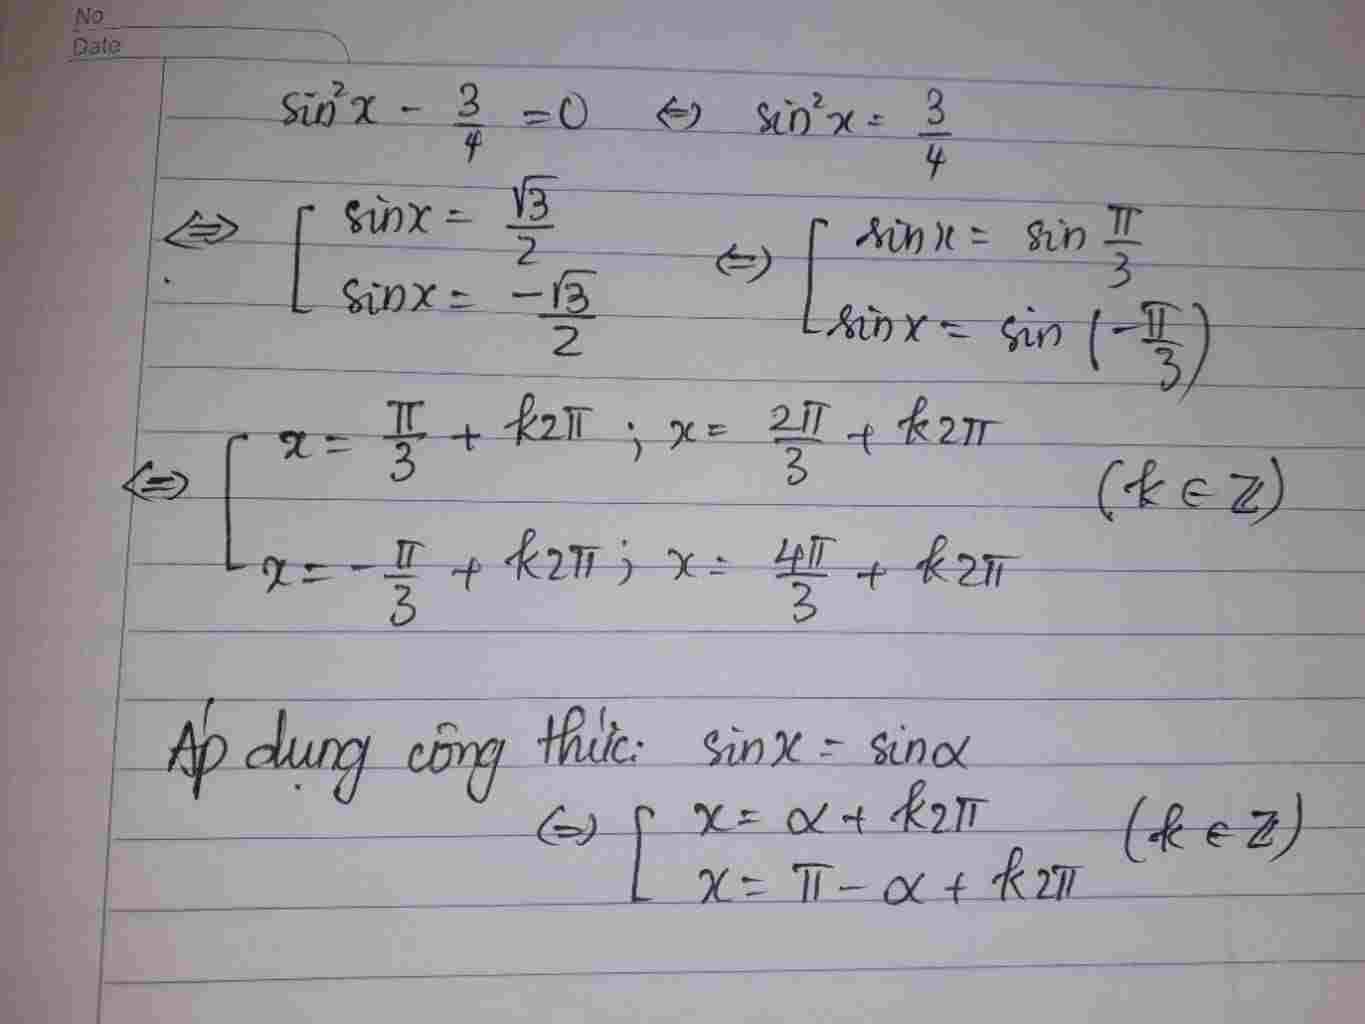 No
Date
sin²x - 3/4 = 0 ⇔ sin²x = 3/4
⇔ [ sinx = √3/2 ⇔ [ sinx = sin π/3
sinx = -√3/2 sinx = sin (-π/3)
⇔ [ x = π/3 + k2π ; x = 2π/3 + k2π
(k ∈ Z)
x = -π/3 + k2π ; x = 4π/3 + k2π
Áp dụng công thức: sinx = sinα
⇔ [ x = α + k2π (k ∈ Z)
x = π - α + k2π